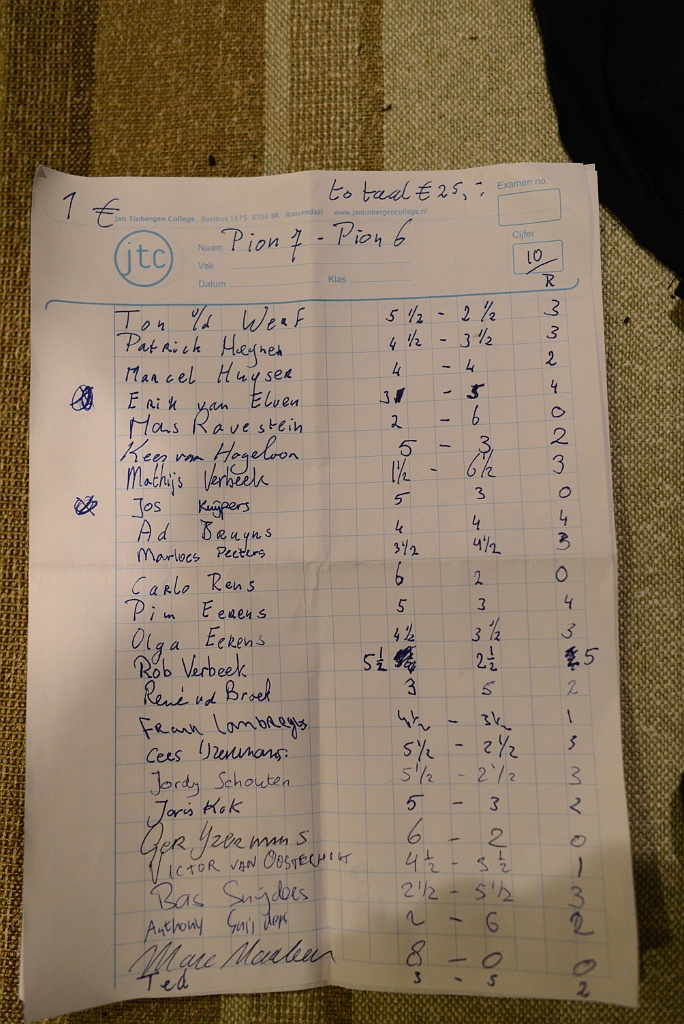 1 € totaal € 25,-
Examen no.
Jan Tinbergen College Postbus 1675 4700 BR Roosendaal www.jantinbergencollege.nl
jtc
Naam Pion 7 - Pion 6
Cijfer
Vak
10
Datum Klas
R
Ton v/d Werf 5 1/2 - 2 1/2 3
Patrick Haegnen 4 1/2 - 3 1/2 3
Marcel Huyser 4 - 4 2
Erik van Elven 3 - 5 4
Mars Ravestein 2 - 6 0
Kees van Hageloon 5 - 3 2
Mathijs Verbeek 1 1/2 - 6 1/2 3
Jos Kuijpers 5 3 0
Ad Bruyns 4 4 4
Marloes Peeters 3 1/2 4 1/2 3
Carlo Rens 6 2 0
Pim Eerens 5 3 4
Olga Eerens 4 1/2 3 1/2 3
Rob Verbeek 5 1/2 2 1/2 5
René vd Broek 3 5 2
Frank Lambregts 4 1/2 - 3 1/2 1
Cees IJzermans. 5 1/2 - 2 1/2 3
Jordy Schouten 5 1/2 - 2 1/2 3
Joris Kok 5 - 3 2
Ger Yzermans 6 - 2 0
Victor van Oosterhout 4 1/2 - 3 1/2 1
Bas Snijders 2 1/2 - 5 1/2 3
Anthony Snijders 2 - 6 2
Marc 8 - 0 0
Ted 3 - 5 2